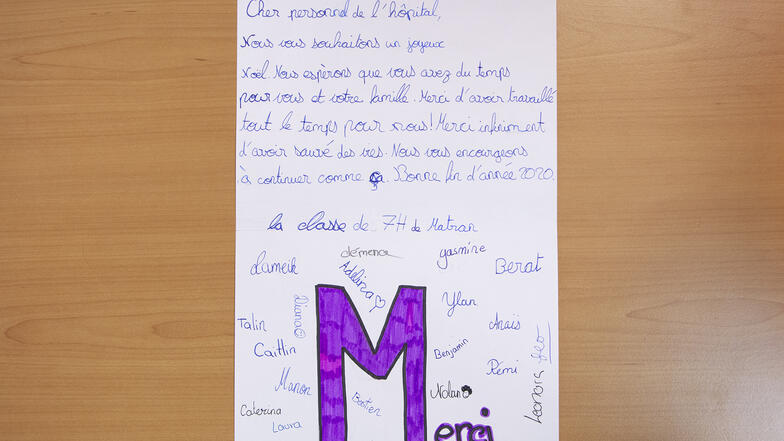 Cher personnel de l'hôpital,
Nous vous souhaitons un joyeux
Noël. Nous espérons que vous avez du temps
pour vous et votre famille. Merci d'avoir travaillé
tout le temps pour nous! Merci infiniment
d'avoir sauvé des vies. Nous vous encourgeons
à continuer comme ça. Bonne fin d'année 2020.
la classe de 7H de Matran
clémence
yasmine
Lameik
Adelina
Berat
Diana
Ylan
Talin
Anaïs
Caitlin
Benjamin
Rémi
Léo
Manon
Bastien
Nolan
Leonora
Caterina
Laura
Merci